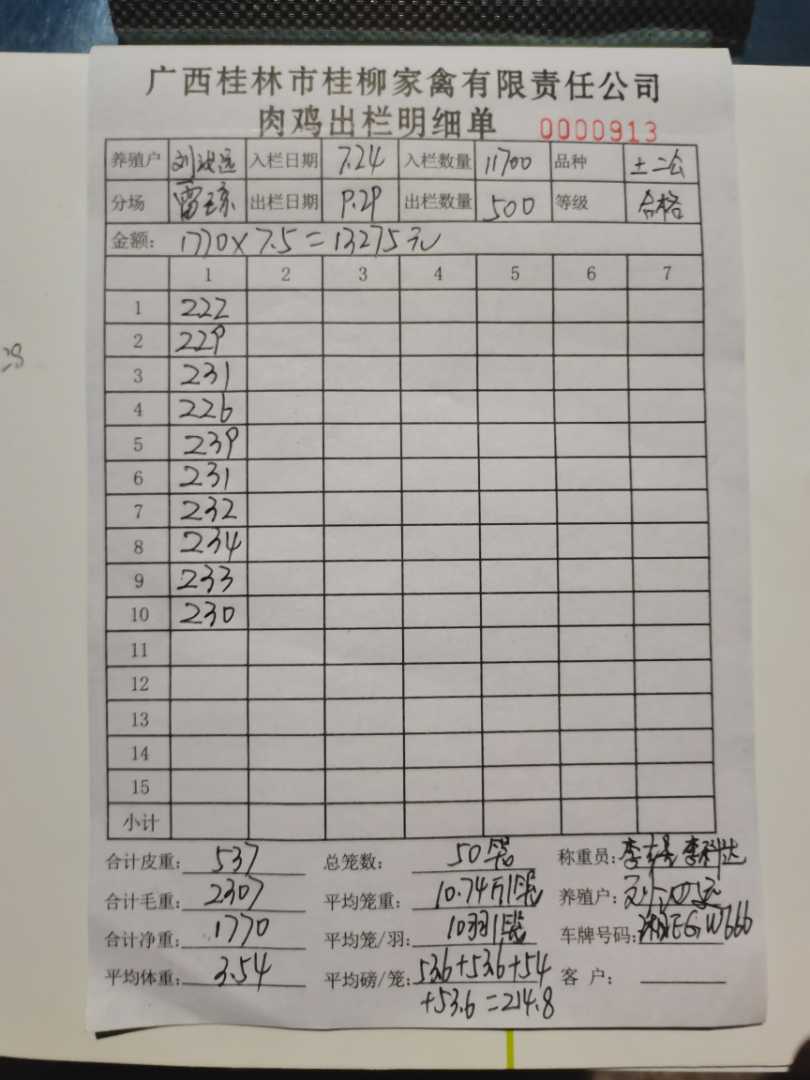 广西桂林市桂柳家禽有限责任公司
肉鸡出栏明细单 0000913
养殖户 刘 远 入栏日期 7.24 入栏数量 11700 品种 土二公
分场 雷 出栏日期 9.29 出栏数量 500 等级 合格
金额: 1770×7.5=13275元
1 2 3 4 5 6 7
1 222
2 229
3 231
4 226
5 239
6 231
7 232
8 234
9 233
10 230
11
12
13
14
15
小计
合计皮重: 537 总笼数: 50笼 称重员: 李 李科达
合计毛重: 2307 平均笼重: 10.74斤/笼 养殖户: 刘 远
合计净重: 1770 平均笼/羽: 10羽/笼 车牌号码: 湘EGW766
平均体重: 3.54 平均磅/笼: 53.6+53.6+54 客 户:
+53.6=214.8